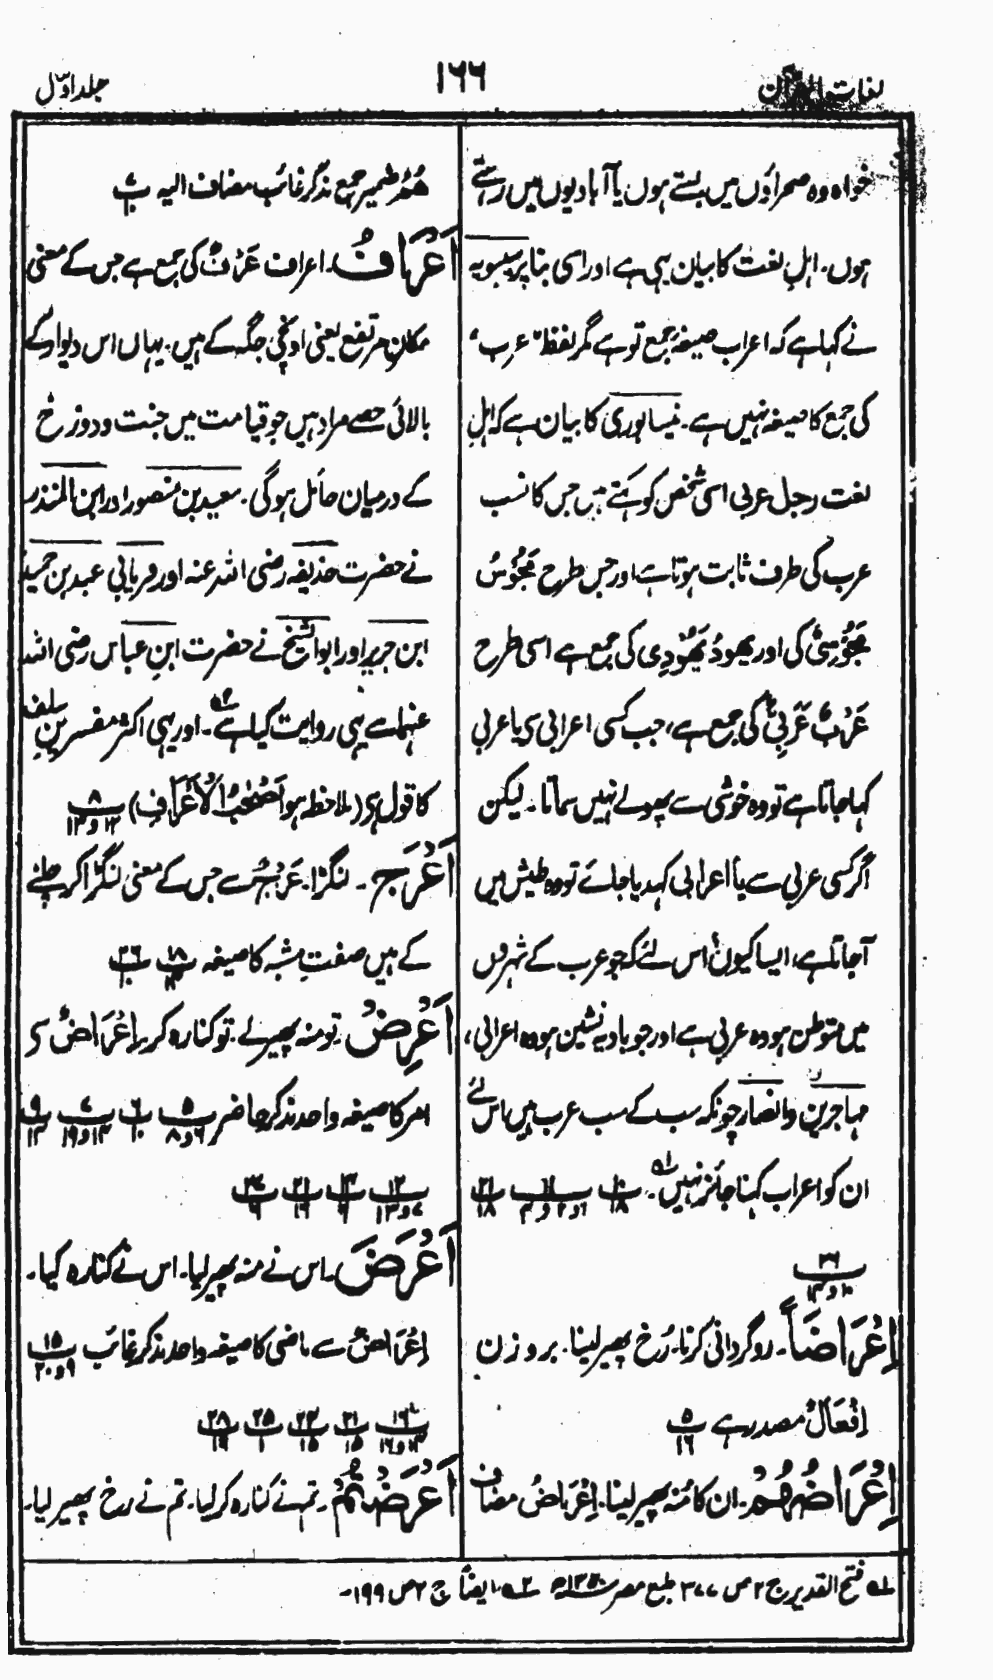 لغات القرآن
۱۶۶
جلد اوّل
خواہ وہ صحراؤں میں بستے ہوں یا آبادیوں میں رہتے
ہوں۔ اہلِ لغت کا بیان یہی ہے اور اسی بنا پر سیبویہ
نے کہا ہے کہ اعراب صیغۂ جمع تو ہے مگر لفظ "عرب"
کی جمع کا صیغہ نہیں ہے۔ نیساپوری کا بیان ہے کہ اہلِ
لغت رجل عربی اسی شخص کو کہتے ہیں جس کا نسب
عرب کی طرف ثابت ہوتا ہے اور جس طرح مَجُوْسُ
مَجُوْسِیٌّ کی اور یھودُ یَھُوْدِی کی جمع ہے اسی طرح
عَرَبٌ عَرَبِیٌّ کی جمع ہے، جب کسی اعرابی کو یا عربی
کہا جاتا ہے تو وہ خوشی سے پھولے نہیں سماتا۔ لیکن
اگر کسی عربی سے یا اعرابی کہہ دیا جائے تو وہ طیش میں
آجاتا ہے، ایسا کیوں؟ اس لئے کہ جو عرب کے شہروں
میں متوطن ہو وہ عربی ہے اور جو بادیہ نشین ہو وہ اعرابی،
مہاجرین و انصار چونکہ سب کے سب عرب ہیں اس لئے
ان کو اعراب کہنا جائز نہیں۔ ۱ھ ۱۰/۱۸ ۱۱/۱و۲و۳ ۲۱/۱۸
۲۶/۱۰و۱۴
اِعْرَاضاً۔ روگردانی کرنا۔ رُخ پھیر لینا۔ بروزن
اِفْعَالٌ مصدر ہے ۵/۱۶
اِعْرَاضُهُمْ۔ ان کا مُنہ پھیر لینا۔ اِعْرَاضُ مضاف
هُمْ ضمیر جمع مذکر غائب مضاف الیہ ۷/۱۰
اَعْرَافُ۔ اعراف عُرْفٌ کی جمع ہے جس کے معنی
مکانِ مرتفع یعنی اونچی جگہ کے ہیں۔ یہاں اس دیوار کے
بالائی حصے مراد ہیں جو قیامت میں جنت و دوزخ
کے درمیان حائل ہوگی۔ سعید بن منصور اور ابن المنذر
نے حضرت حذیفہ رضی اللہ عنہ اور فریابی عبد بن حمید
ابن جریر اور ابوالشیخ نے حضرت ابنِ عباس رضی اللہ
عنہما سے یہی روایت کیا ہے ۲ھ۔ اور یہی اکثر مفسرینِ سلف
کا قول ہے (ملاحظہ ہو اَصْحٰبُ الْاَعْرَافِ) ۸/۱۲و۱۳
اَعْرَج۔ لنگڑا۔ عَرَجٌ سے جس کے معنی لنگڑا کر چلنے
کے ہیں صفتِ مشبہ کا صیغہ ۱۸/۱۴ ۲۶/۱۰
اَعْرِضْ۔ تو منہ پھیر لے۔ تو کنارہ کر۔ اِعْرَاضٌ سے
امر کا صیغہ واحد مذکر حاضر ۵/۶و۸ ۶/۱۰ ۷/۱۴و۱۹ ۹/۱۴
۱۲/۷و۱۳ ۱۴/۶ ۲۱/۱۶ ۲۷/۶
اَعْرَضَ۔ اس نے منہ پھیر لیا۔ اس نے کنارہ کیا۔
اِعْرَاضٌ سے ماضی کا صیغہ واحد مذکر غائب ۱۵/۹و۲۰
۱۶/۱۴و۱۶ ۲۱/۱۵ ۲۴/۱۵ ۲۵/۱ ۲۸/۱۹
اَعْرَضْتُمْ۔ تم نے کنارہ کر لیا۔ تم نے رخ پھیر لیا۔
۱ھ فتح القدیر ج ۲ ص ۳۷۷ طبع مصر ۱۳۵۰ھ ۲ھ ایضاً ج ۲ ص ۱۹۹۔